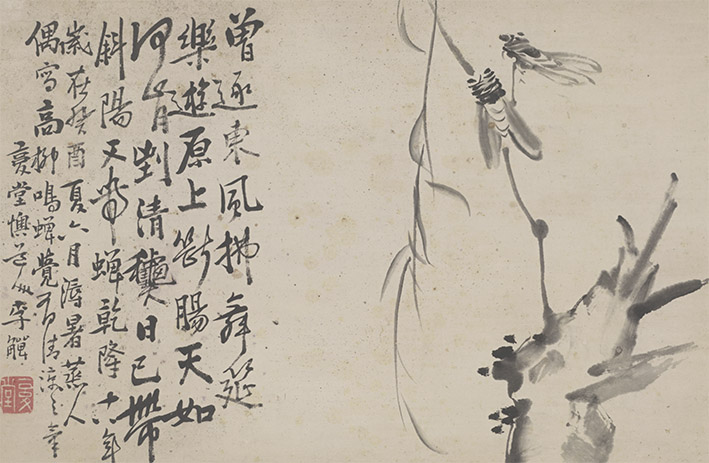 曾逐東風拂舞筵
樂遊原上斷腸天如
何肯到清穐日已帶
斜陽又帶蟬乾隆十八年
歲在癸酉夏六月溽暑蒸人
偶寫高柳鳴蟬覺有清涼之意
复堂懊道人李鱓
复堂